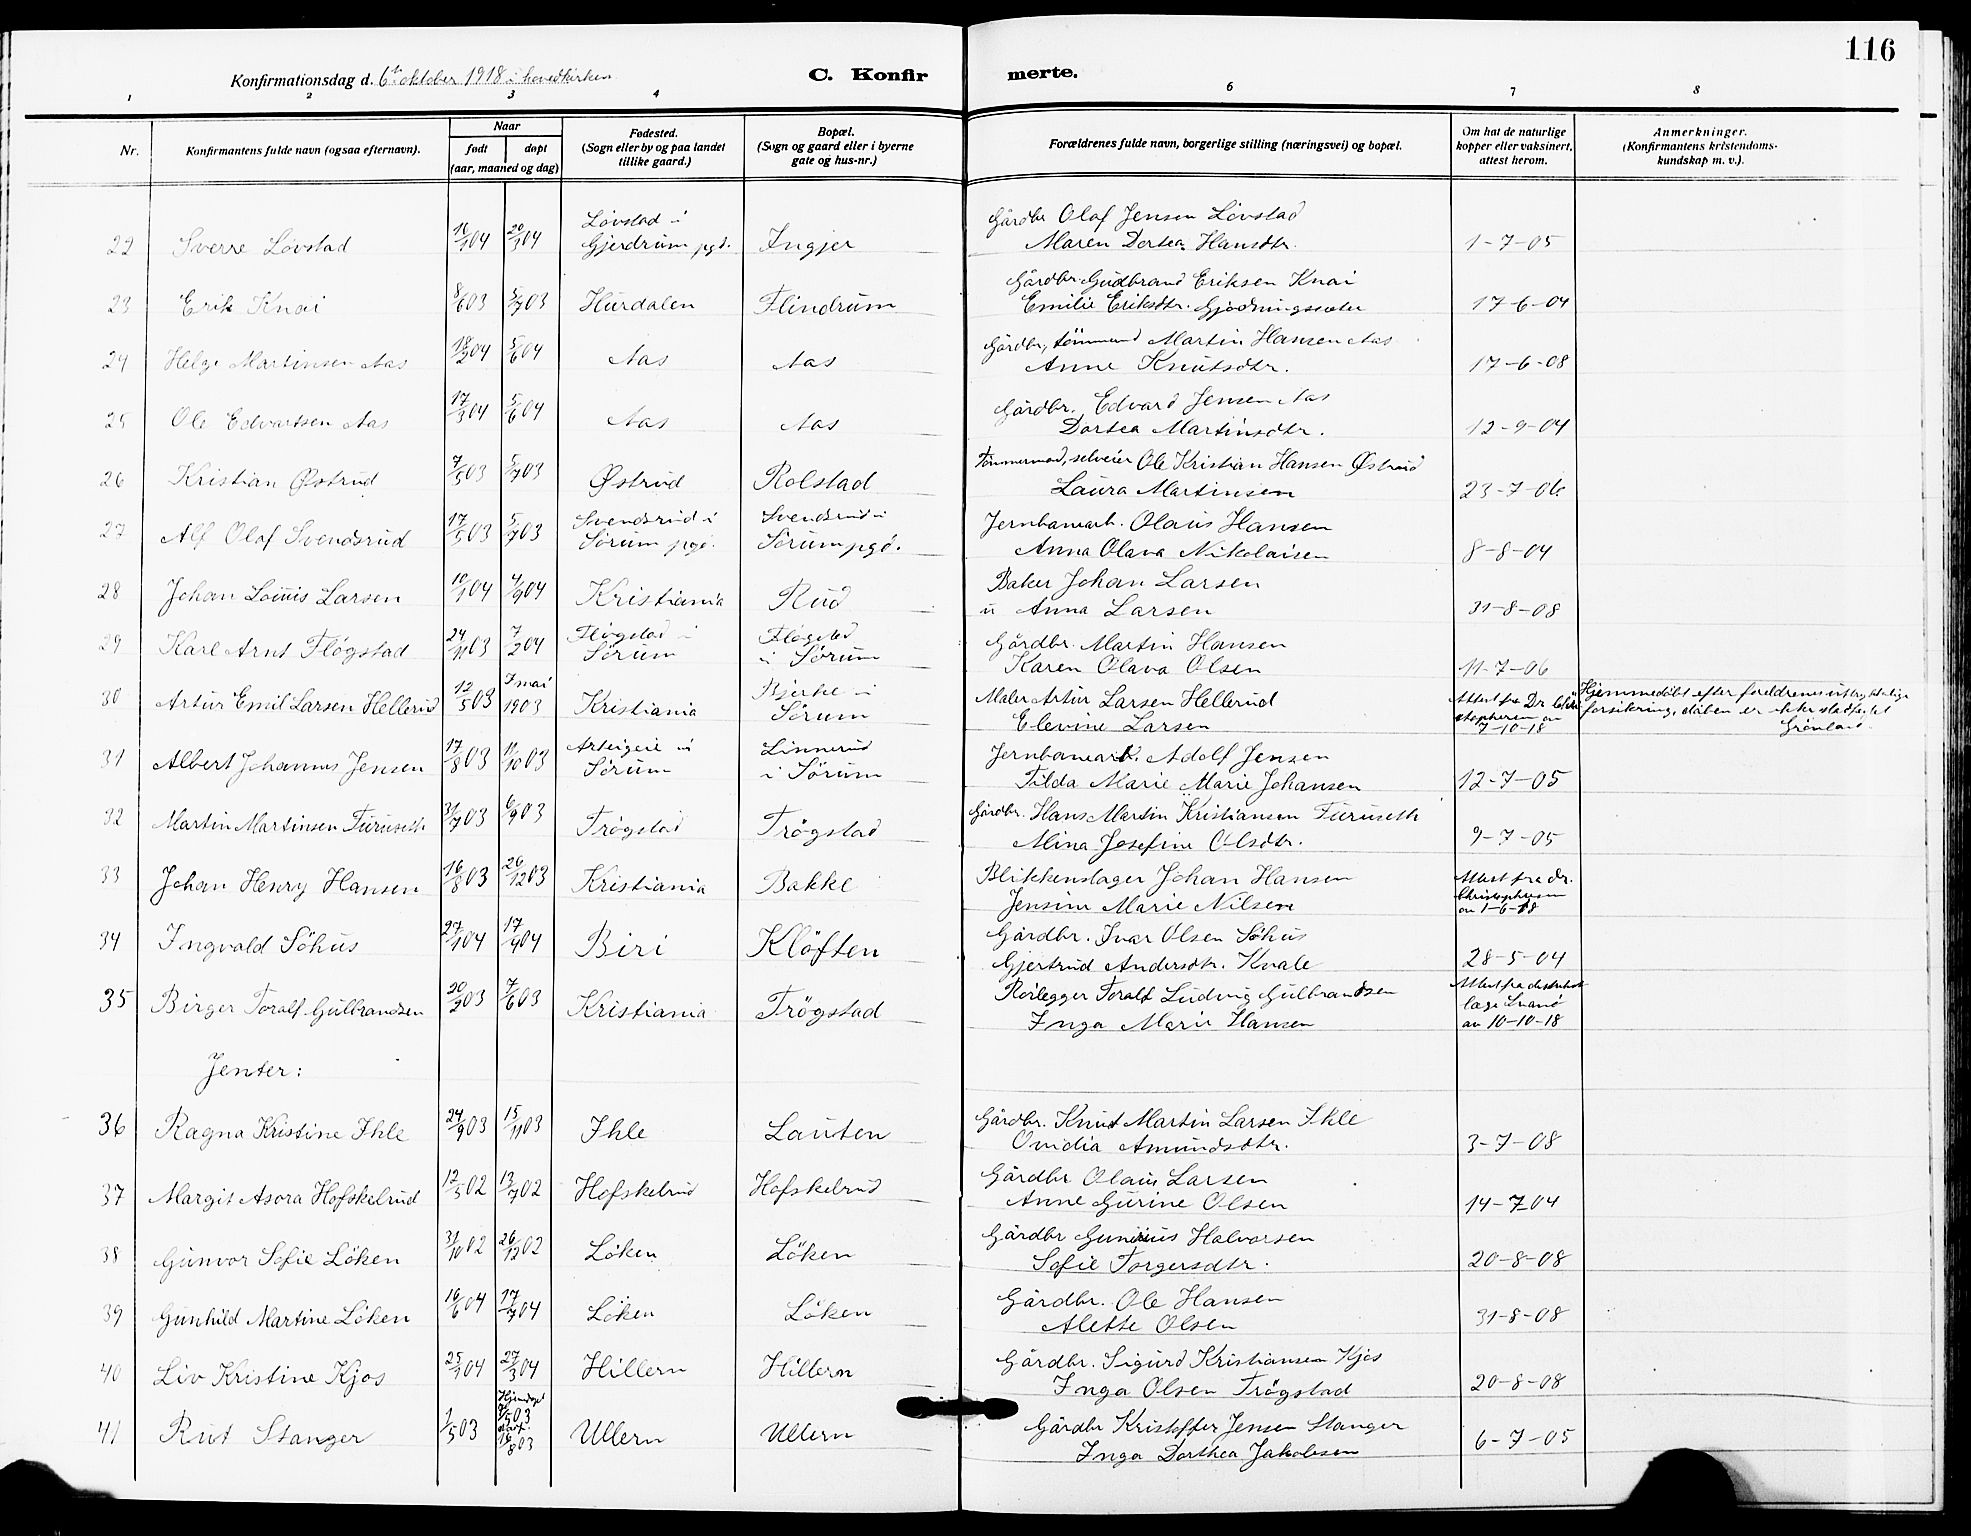 116
Konfirmationsdag d. 6te oktober 1918 i hovedkirken
C. Konfirmerte.
1 2 3 4 6 7 8
Nr.
Konfirmantens fulde navn (ogsaa efternavn).
Naar
født
døpt
(aar, maaned og dag)
Fødested.
(Sogn eller by og paa landet
tillike gaard.)
Bopæl.
(Sogn og gaard eller i byerne
gate og hus-nr.)
Forældrenes fulde navn, borgerlige stilling (næringsvei) og bopæl.
Om hat de naturlige
kopper eller vaksinert,
attest herom.
Anmerkninger.
(Konfirmantens kristendoms-
kundskap m. v.).
Løvstad i
Gårdbr Olaf Jensen Lövstad
22 Sverre Lövstad 20/1 04 Gjerdrum pgd. Ingjer Maren Dortea Hansdtr. 1-7-05
Gårdbr. Gudbrand Eriksen Knai
23 Erik Knai 8/6 03 5/7 03 Hurdalen Flindrum Emilie Eriksdtr. 17-6-04
Gårdbr, tömmermd Martin Hansen Aas
24 Helge Martinsen Aas 18/2 04 5/6 04 Aas Aas Anne Knutsdtr. 17-6-08
Gårdbr. Edvard Jensen Aas
25 Ole Edvartsen Aas 5/6 04 Aas Aas Dortea Martinsdtr. 12-9-04
Tömmermand, selveier Ole Kristian Hansen Østrud
26 Kristian Østrud 7/5 03 5/7 03 Østrud Rolstad Laura Martinsen 23-7-06
Svendsrud i Svendsrud i Jernbanearb. Olaus Hansen
27 Alf Olaf Svendsrud 17/5 03 5/7 03 Sörum pgd. Sörum pgd. Anna Olava Nikolaisen 8-8-04
Baker Johan Larsen
28 Johan Louis Larsen 10/1 04 4/9 04 Kristiania Rud u Anna Larsen 31-8-08
Flögstad i Flögstad Gårdbr. Martin Hansen
29 Karl Arnt Flögstad 24/11 03 7/2 04 Sörum i Sörum Karen Olava Olsen 11-7-06
7 mai Bjerke i Maler Artur Larsen Hellerud Attest fra Dr. Hjemmedöbt efter foreldrenes uttrykkelige
30 Artur Emil Larsen Hellerud 12/5 03 1903 Kristiania Sörum Elevine Larsen 7-10-18 forsikring, dåben er ikke stadfestet
Grönland.
Linnerud Jernbanearb. Adolf Jensen
31 Albert Johannes Jensen 17/8 03 11/10 03 Sörum i Sörum Tilda Marie Marie Johansen 12-7-05
Gårdbr. Hans Martin Kristiansen Furuseth
32 Martin Martinsen Furuseth 31/7 03 6/9 03 Trögstad Trögstad Mina Josefine Olsdtr. 9-7-05
Blikkenslager Johan Hansen Attest fra dr.
33 Johan Henry Hansen 16/8 03 26/12 03 Kristiania Bakke Jensine Marie Nilsen Christophersen
av 1-6-18
Gårdbr. Ivar Olsen Söhus
34 Ingvald Söhus 27/1 04 17/9 04 Biri Klöften Gjertrud Andersdtr. Kvale 28-5-04
Rörlegger Toralf Ludvig Gulbrandsen Attest fra distrikts
35 Birger Toralf Gulbrandsen 20/2 03 7/6 03 Kristiania Trögstad Inga Marie Hansen læge
av 10-10-18
Jenter:
Gårdbr. Knut Martin Larsen Ihle
36 Ragna Kristine Ihle 24/9 03 15/11 03 Ihle Lauten Ovidia Amundsdtr. 3-7-08
Gårdbr Olaus Larsen
37 Margit Asora Hofskelrud 12/5 02 13/7 02 Hofskelrud Hofskelrud Anne Gurine Olsen 14-7-04
Gårdbr Gunerius Halvorsen
38 Gunvor Sofie Löken 31/10 02 26/12 02 Löken Löken Sofie Torgersdtr. 20-8-08
Gårdbr. Ole Hansen
39 Gunhild Martine Löken 16/6 04 17/7 04 Löken Löken Alette Olsen 31-8-08
Gårdbr. Sigurd Kristiansen Kjos
40 Liv Kristine Kjos 25/1 04 27/3 04 Hillern Hillern Inga Olsen Trögstad 20-8-08
Gårdbr Kristoffer Jensen Stanger
41 Rut Stanger 1/5 03 16/8 03 Ullern Ullern Inga Dorthea Jakobsen 6-7-05